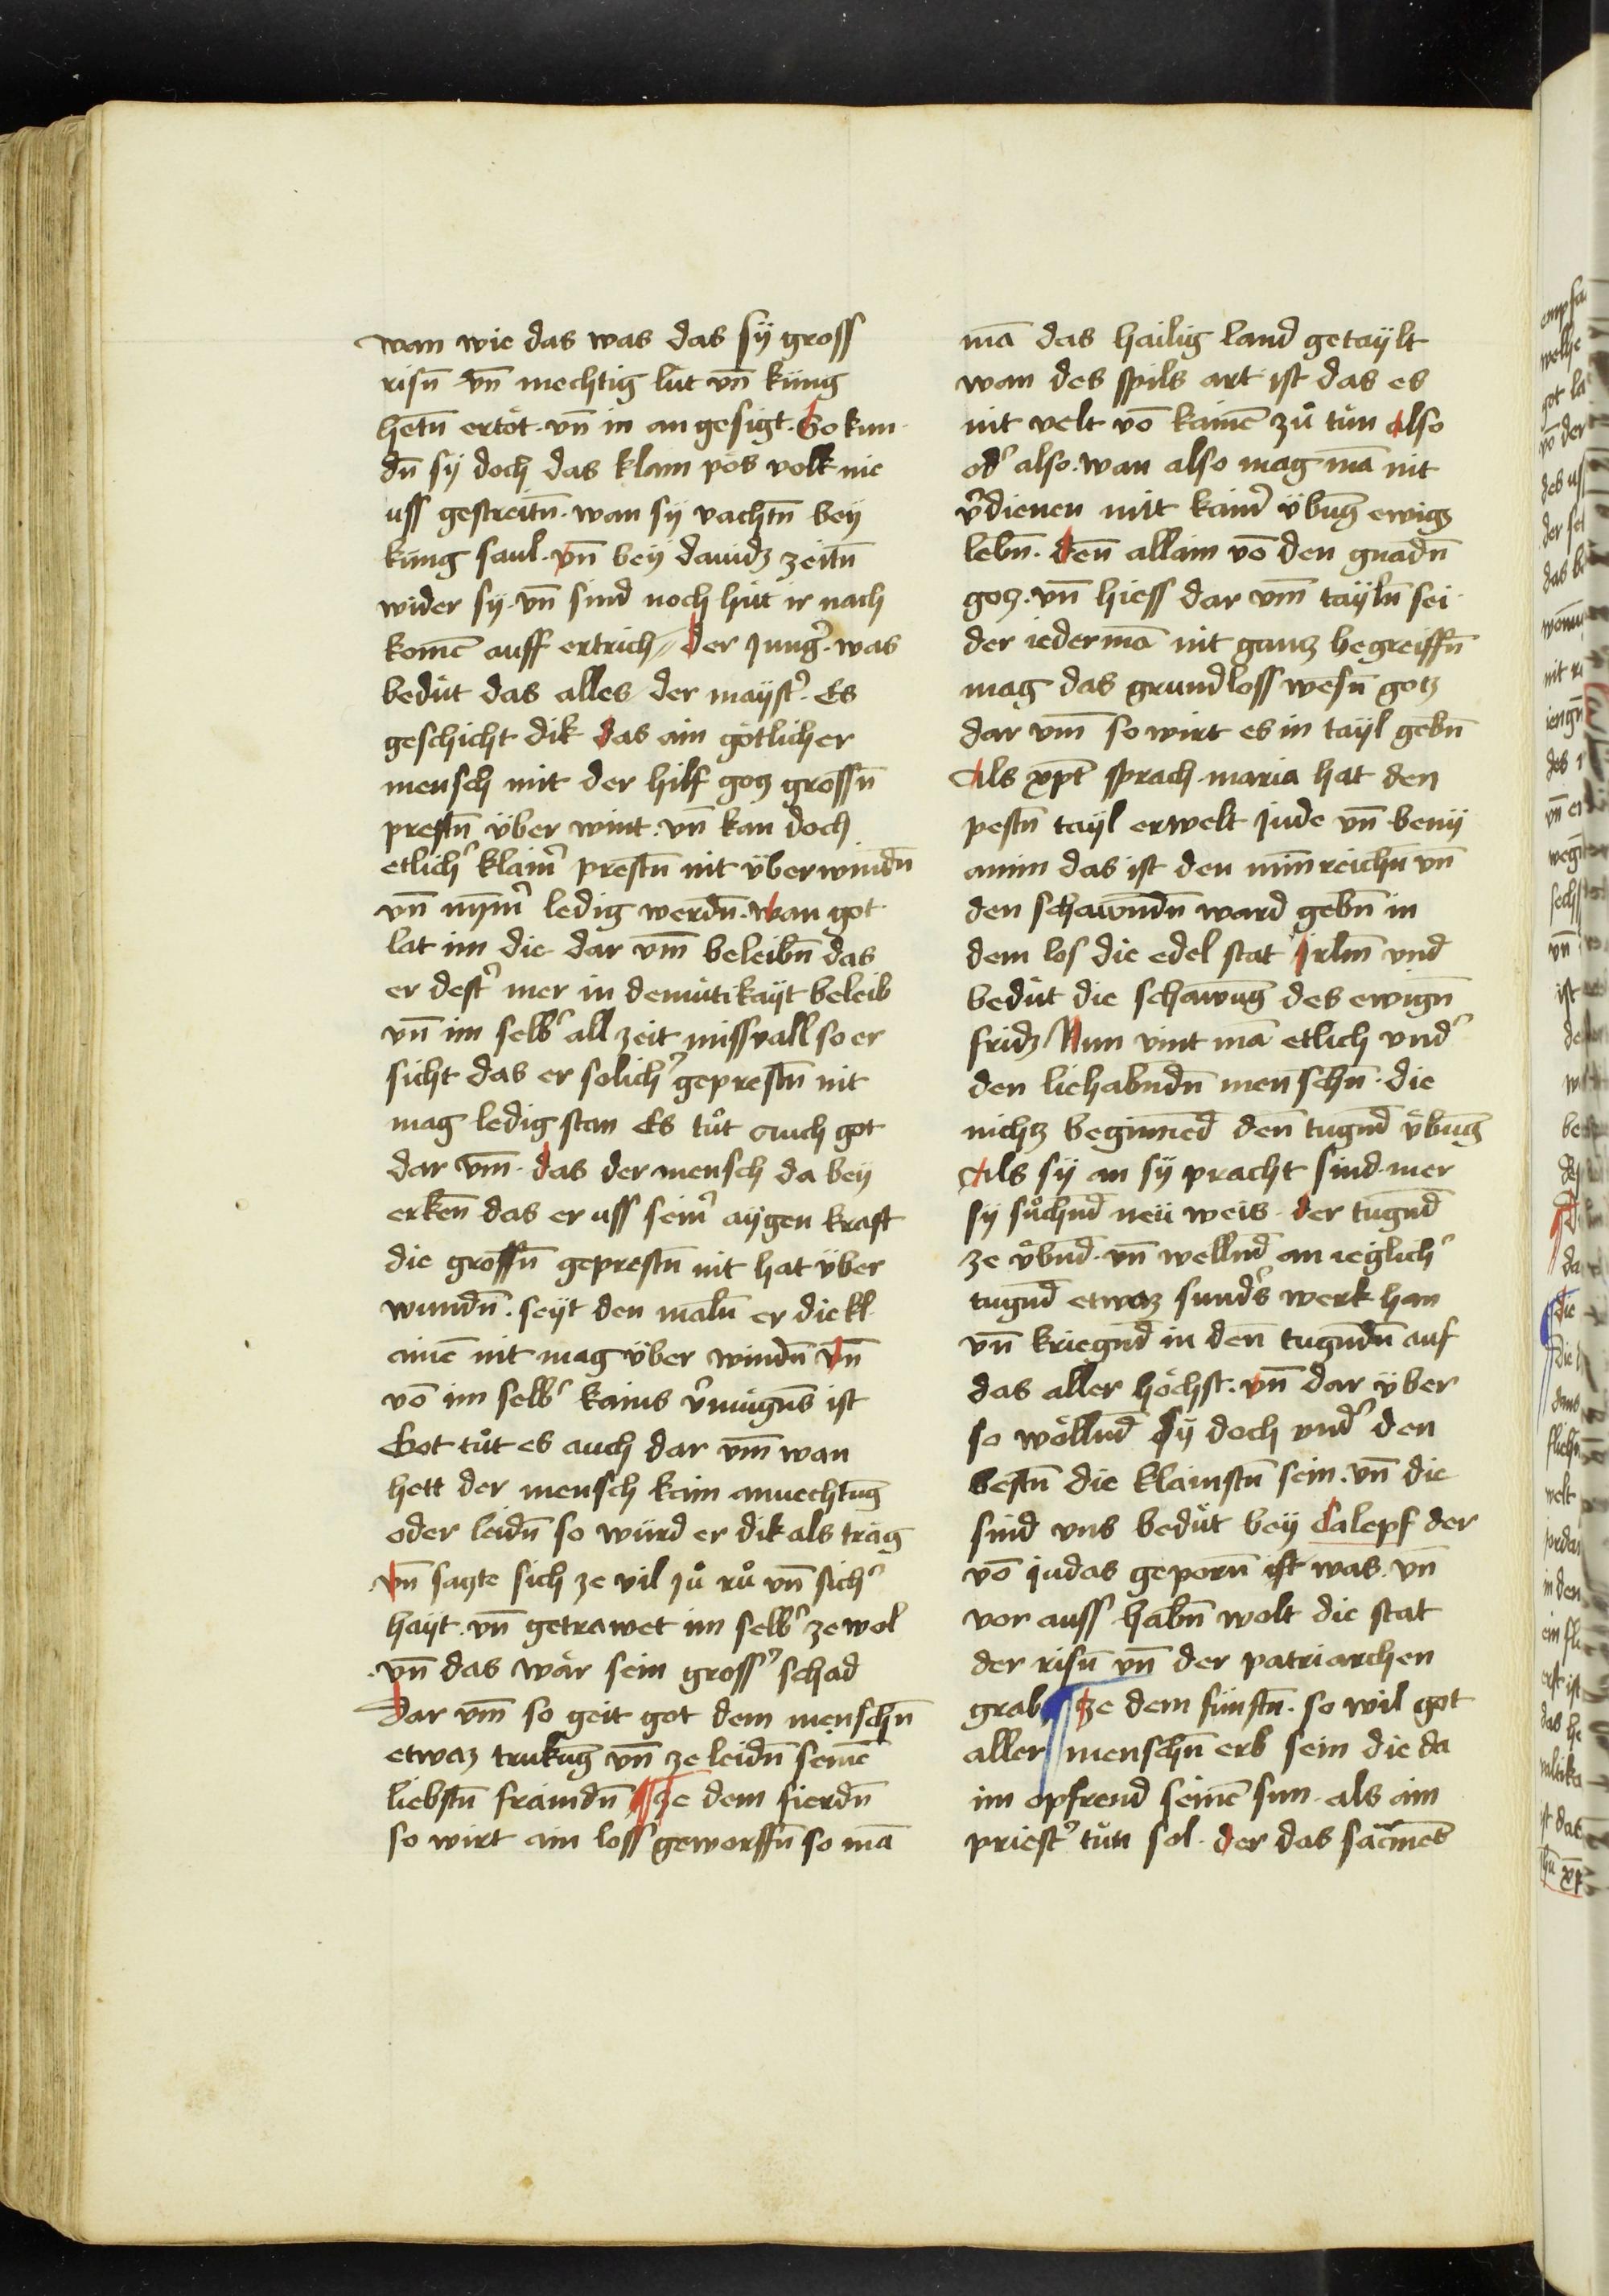 wan wie das was das sÿ gross
risn̄ vn̄ mechtig lüt vn̄ küng
hetn̄ ertöt · vn̄ in an gesigt · So kun
dn̄ sÿ doch das klain pös volk nie
uss gestreitn̄ · wan sÿ vachtn̄ beÿ
küng saul · vn̄ beÿ dauidz zeitn̄
wider sÿ · vn̄ sind noch hüt ir nach
komē auff ertrich // der Jung͛ · was
bedüt das alles / der maÿst͛ · Es
geschicht dik das ain götlicher
mensch mit der hilf gotz grossn̄
prestn̄ über wint · vn̄ kan doch
etlich͛ klain͛ prestn̄ nit überwindn̄
vn̄ nÿm͛ ledig werdn̄ · wan got
lat im die dar vm̄ beleibn̄ das
er dest͛ mer in demütikaÿt beleib
vn̄ im selb͛ all zeit missvall so er
sicht das er solich͛ geprestn̄ nit
mag ledig stan Es tůt auch got
dar vm̄ · das der mensch da beÿ
erken̄ das er uss sein͛ aÿgen kraft
die grossn̄ geprestn̄ nit hat über
wundn̄ · seÿt den maln̄ er die kl
ainē nit mag über windn̄ vn̄
vō im selb͛ kains v͛mügn̄s ist
Got tůt es auch dar vm̄ wan
hett der mensch kain anvechtūg
oder leidn̄ so würd er dik als träg
vn̄ sazte sich ze vil zů rů vn̄ sich͛
haÿt · vn̄ getrawet im selb͛ ze wol
· vn̄ das wär sein gross͛ schad
Dar vm̄ so geit got dem menschn̄
etwaz trukūg vn̄ ze leidn̄ seinē
liebstn̄ fraindn̄ ¶ ze dem fierdn̄
so wirt ain loss geworffn̄ so mā
mā das hailig land getaÿlt
wan des spils art ist das es
nit velt vō kainē zů tün also
od͛ also · wan also mag mā nit
v͛dienen mit kain͛ übūg ewigs
lebn̄ · den̄ allain vō den gnadn̄
gotz · vn̄ hiess dar vm̄ taÿln̄ sei
der iedermā nit gantz begreiffn̄
mag das grundloss wesn̄ gotz
dar vm̄ so wirt es in taÿl gebn̄
Als xp̄t sprach · maria hat den
pestn̄ taÿl erwelt Jude vn̄ benÿ
amin das ist den min̄reichn̄ vn̄
den schawndn̄ ward gebn̄ in
dem los die edel stat Jrlm̄ und
bedüt die schawūg des ewign̄
fridz Nun vint mā etlich vnd͛
den liebhabndn̄ menschn̄ · die
nichtz beginned den̄ tugnd übūg
Als sÿ an sÿ pracht sind · mer
sÿ sůchnd neü weis · der tugnd
ze übnd · vn̄ wellnd an ieglich͛
tugnd etwaz sund͛s werk han
vn̄ kriegnd in den̄ tugndn̄ auf
das aller höchst · vn̄ dar über
so wöllnd sÿ doch vnd͛ den
bestn̄ die klainstn̄ sein · vn̄ die
sind vns bedüt beÿ Calepf der
vō iudas geporn̄ ist was · vn̄
vor auss habn̄ wolt die stat
der risn̄ vn̄ der patriarchen
grab ¶ ze dem fünftn̄ · so wil got
aller menschn̄ erb sein die da
im opfrend seinē sun · als ain
priest͛ tůn sol · der das sac͛mēt